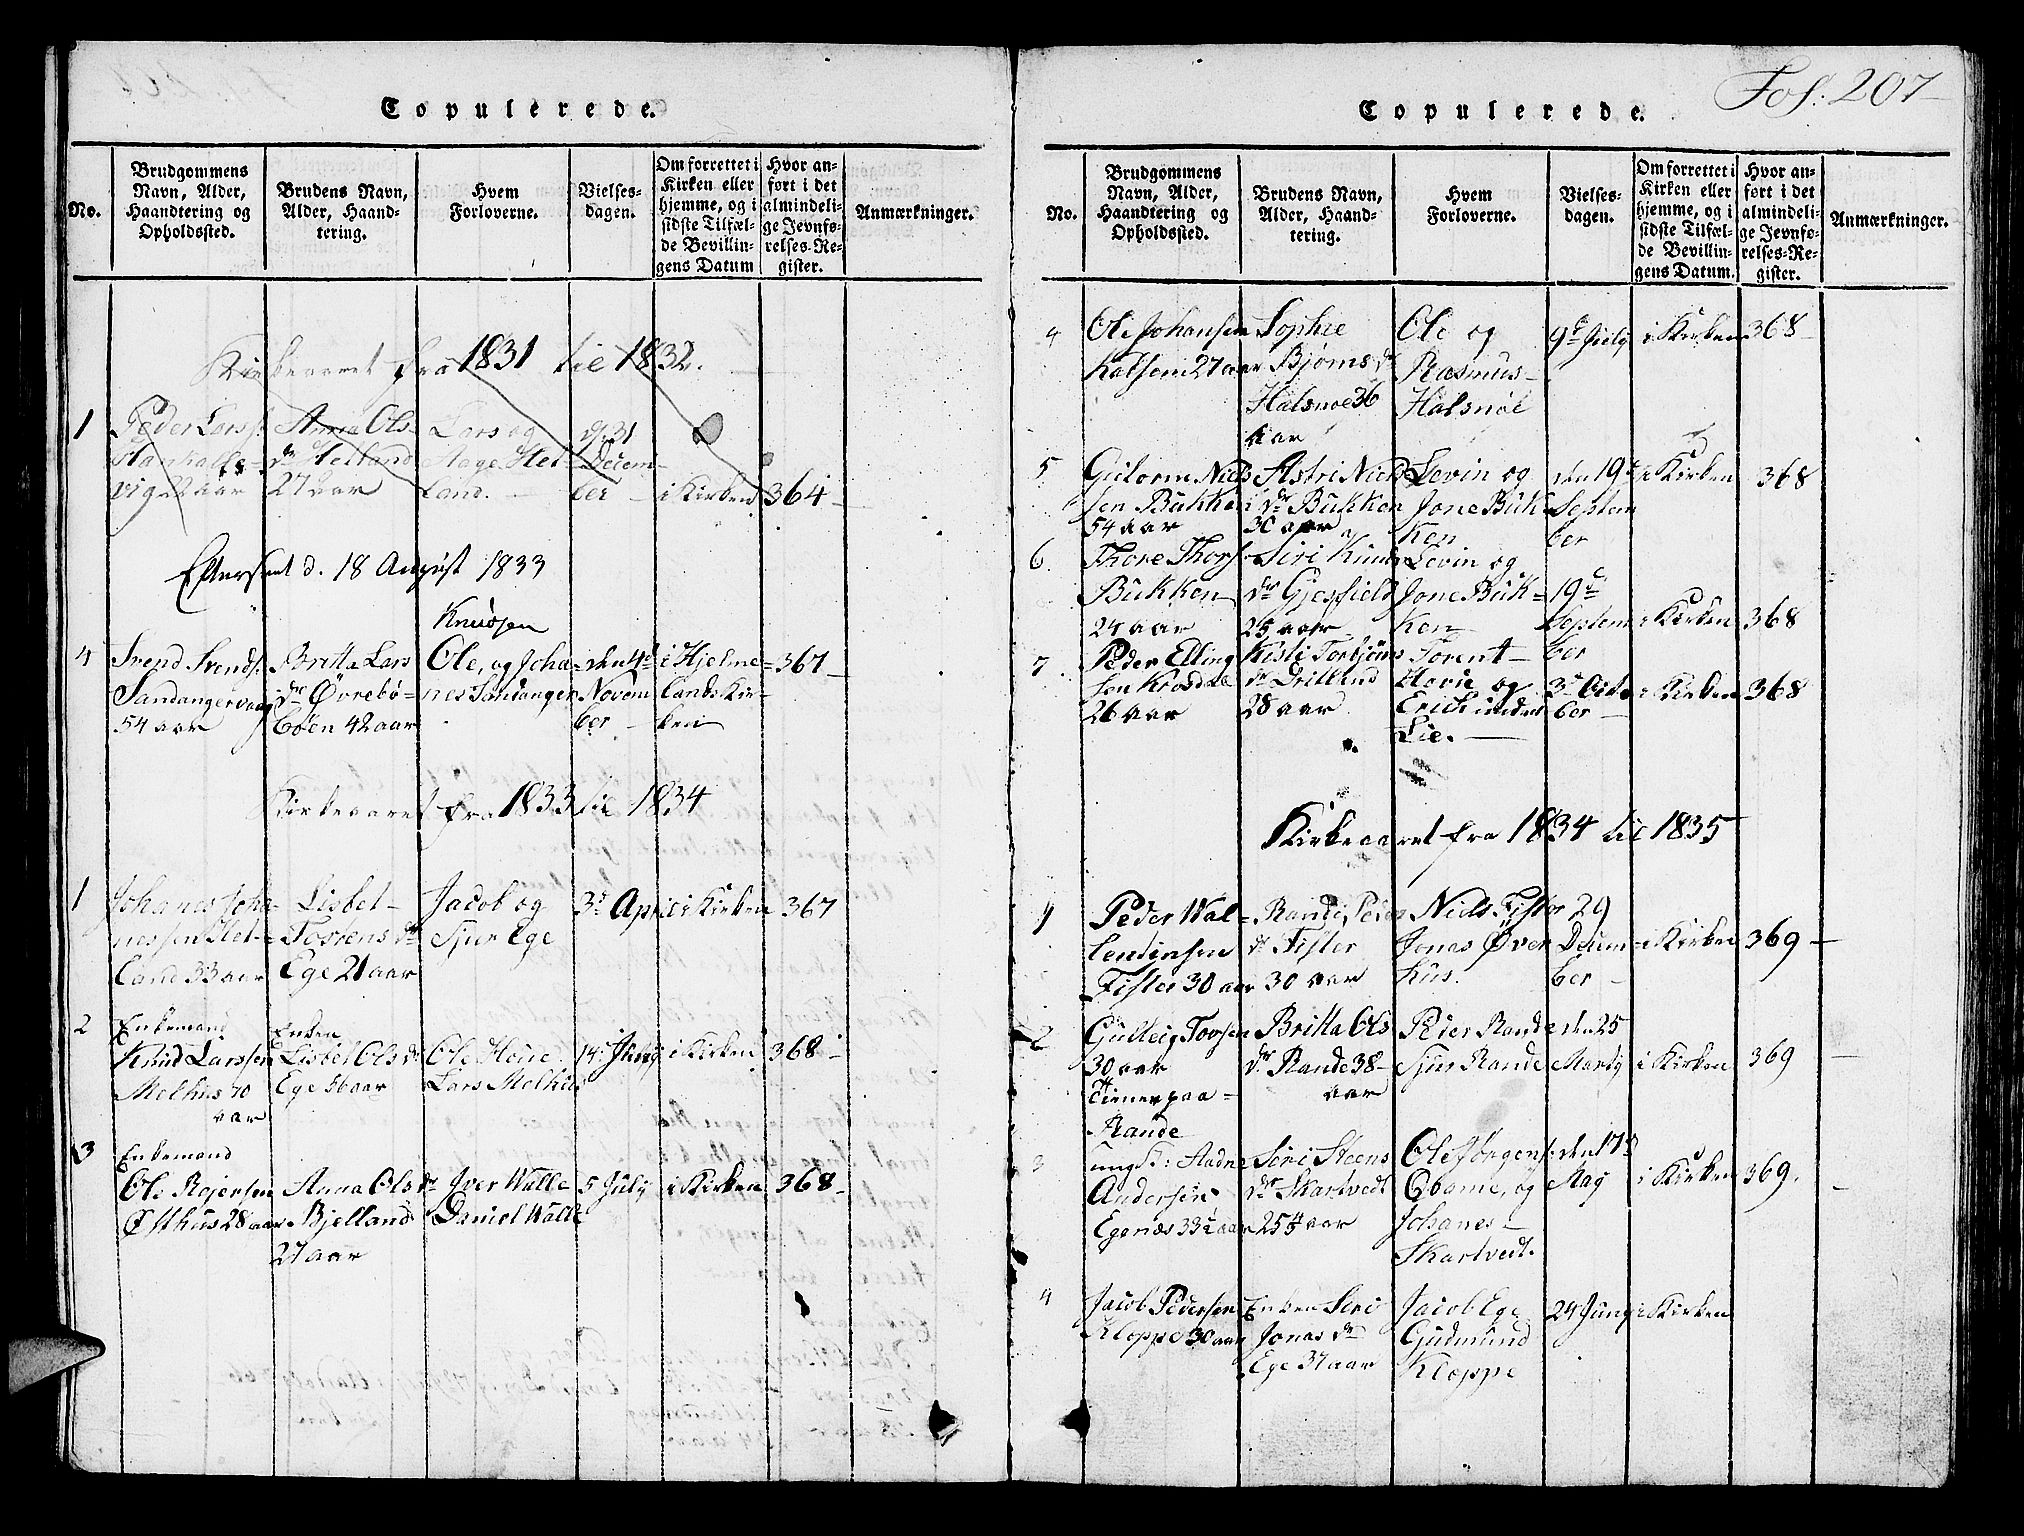 Fol: 207
Copulerede.
No.
Brudgommens Navn, Alder, Haandtering og Opholdssted.
Brudens Navn, Alder, Haandtering.
Hvem Forloverne.
Vielsesdagen.
Om forrettet i Kirken eller hjemme, og i sidste Tilfælde Bevillingens Datum
Hvor anført i det almindelige Jevnførelses-Register.
Anmærkninger.
Kirkeaaret fra 1831 til 1832.
1
Peder Larss:
vig 22 aar
Anna Ols-
dr Helland
27 aar
Lars og
Aage Hel-
land.
d. 31
Decem-
ber
i Kirken
364
Eftersæt d. 18 August 1833
4
Svend Svends:
Sandangervaag
54 aar
Britta Lars
dr Øvrebø-
bøen 42 aar
Knudsen
Ole, og Joha-
nes Sandanger
den 4de
Novem
ber
i Hjelme-
lands Kir-
ken
367
Kirkeaaret fra 1833 til 1834
1
Johanes Joha-
nessen Het-
land 33 aar
Lisbet
Torens dr
Ege 21 aar
Jacob og
Sjur Ege
3d April
i Kirken
367
2
Enkemand
Knud Larssen
Melhus 70
aar
Enken
Lisbet Ols dr
Ege 56 aar
Ole Høue
Lars Melhus
14d
i Kirken
368
3
Enkemand
Ole Rejersen
Østhus 28 aar
Anna Ols dr
Bjelland
27 aar
Iver Walle
Daniel Walle
5 July
i Kirken
368
Copulerede.
No.
Brudgommens Navn, Alder, Haandtering og Opholdssted.
Brudens Navn, Alder, Haandtering.
Hvem Forloverne.
Vielsesdagen.
Om forrettet i Kirken eller hjemme, og i sidste Tilfælde Bevillingens Datum.
Hvor anført i det almindelige Jevnførelses-Register.
Anmærkninger.
4
Ole Johansen
27 aar
Sophie
Bjørns dr
Halsnøe 36
aar
Ole og
Rasmus
Halsnøe
9d July
i Kirken
368
5
Gutorm Niels
sen Bukken
54 aar
Astri Niels
dr Bukken
30 aar
Levin og
Jone Buk-
ken
den 19d
Septem
ber
i Kirken
368
6
Thore Thors:
Bukken
24 aar
Siri Knuds
dr Gjesfield
25 aar
Levin og
Jone Buk-
ken
19d
Septem
ber
i Kirken
368
7
Peder Elling
sen Krosdale
26 aar
Kisti Torbjørns
dr Dritlund
28 aar
Torent
Hovie og
Erich under
Lie.
3d Octo
ber
i Kirken
368
Kirkeaaret fra 1834 til 1835
1
Peder Wal-
lentinsen
Fister 30 aar
Randi Peder
dr Fister
30 aar
Niels Fister
Jonas Øver
hus.
29
Decem-
ber
i Kirken
369
2
Gulleig Torsen
30 aar
Tiener paa
Rande
Britta Ols
dr Rande 38
aar
Peder Rande
Sjur Rande
den 25
Marty
i Kirken
369
3
ungk: Aadne
Andersen
Egenæs 33½ aar
Siri Steens
dr Skartvedt
25 aar
Ole Jørgens:
og
Johanes
Skartvedt.
den 17d
May
i Kirken
369.
4
Jacob Pedersen
Kloppe 30 aar
Enken Siri
Jonas dr
Ege 37 aar
Jacob Ege
Gudmund
Kloppe
24 Juny
i Kirken